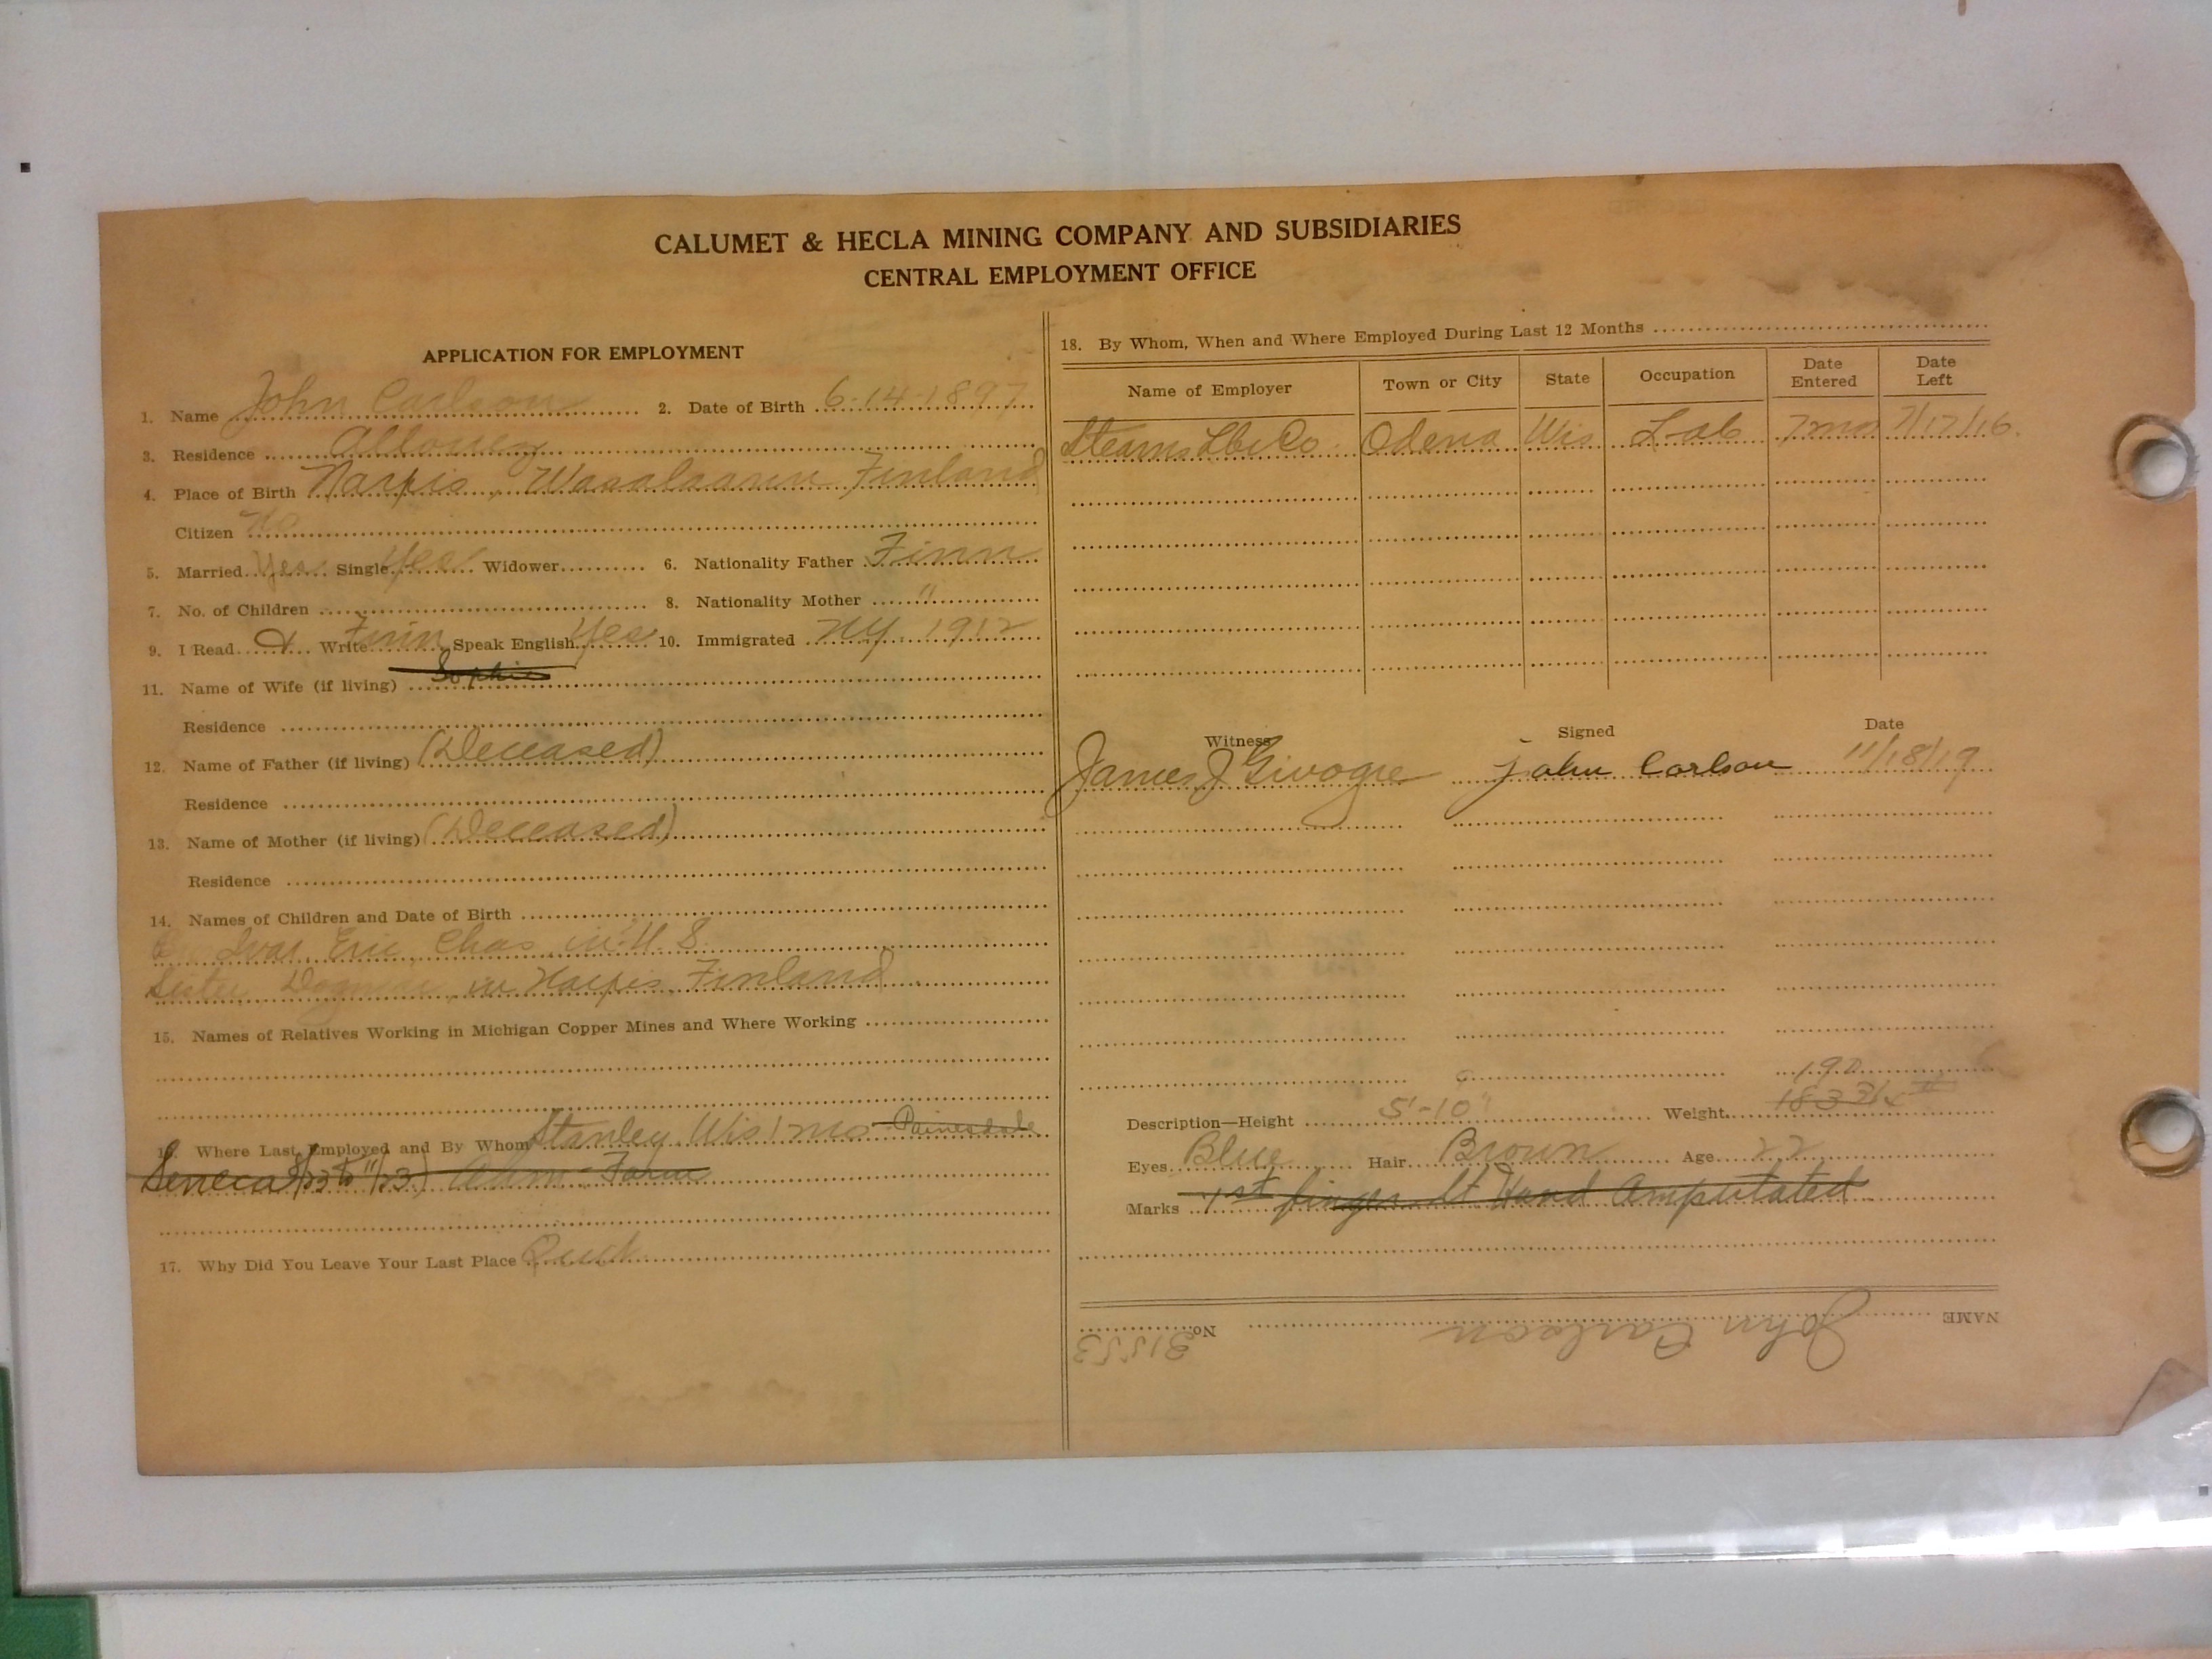 CALUMET & HECLA MINING COMPANY AND SUBSIDIARIES
CENTRAL EMPLOYMENT OFFICE
APPLICATION FOR EMPLOYMENT
1. Name John Carlson 2. Date of Birth 6-14-1897
3. Residence Allouez
4. Place of Birth Narpis, Wasalaanin Finland
Citizen No
5. Married Yes Single Yes Widower 6. Nationality Father Finn
7. No. of Children 8. Nationality Mother "
9. I Read & Write Finn Speak English Yes 10. Immigrated NY 1912
11. Name of Wife (if living) Sophie
Residence
12. Name of Father (if living) (Deceased)
Residence
13. Name of Mother (if living) (Deceased)
Residence
14. Names of Children and Date of Birth
Ivar, Eric, Chas in U.S.
Sister Dagmar in Narpis Finland
15. Names of Relatives Working in Michigan Copper Mines and Where Working
16. Where Last Employed and By Whom Stanley Wis 1 mo Painesdale
Seneca Farm
17. Why Did You Leave Your Last Place Quit
18. By Whom, When and Where Employed During Last 12 Months
Name of Employer Town or City State Occupation Date Entered Date Left
Stearns Lbr Co Odena Wis Lab 7 mo 7/17/16
Witness Signed Date
James J Givogre John Carlson 11/18/19
190
Description—Height 5'-10" Weight 183
Eyes Blue Hair Brown Age 22
Marks 1st finger Lt Hand Amputated
NAME John Carlson No. 31553